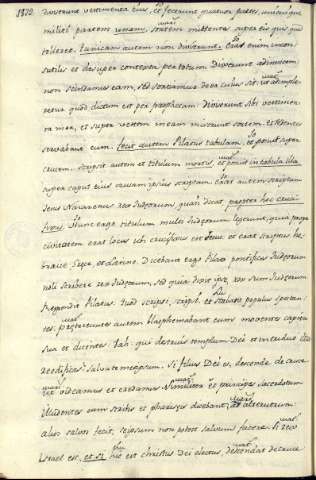 1822.
diviserunt vestimenta eius, et fecerunt quatuor partes, unicuique
militi partem unam, sortem mittentes super eis quis quid
tolleret. Tunicam autem non diviserunt. Erat enim incon
sutilis et desuper contexta per totum dixerunt adinvicem
non scindamus eam, sed sortiamur de ea cuius sit, ut adimple
retur quod dictum est per prophetam. Diviserunt sibi vestimen
ta mea, et super vestem meam miserunt sortem et sedentes
servabant eum. fecit autem Pilatus tabulam et posuit super
crucem. scripsit autem et titulum et posuit in tabula illa
super caput eius causam ipsius scriptam. Erat autem scriptum
Jesus Nazarenus rex Judeorum quasi dicat propter hec cruci
fixus. Hunc ergo titulum multi Judeorum legerunt, quia prope
civitatem erat locus ubi crucifixus est Jesus et erat scriptus he
braice Grece, et Latine. Dicebant ergo Pilato pontifices Judeorum
noli scribere rex Judeorum, sed quia dixit rex sum Judeorum
Respondit Pilatus. Quod scripsi, scripsi. et stabat populus spectan
tes, pretereuntes autem blasphemabant eum moventes capita
sua et dicentes. Vah. qui destruis templum Dei et in triduo illud
reedificas: salva temetipsum. Si filius Dei es, descende de cruce
ut videamus et credamus. Similiter et principes sacerdotum
illudentes cum scribis et phariseis dicebant, ad alterutrum
alios salvos fecit, seipsum non potest salvum facere. Si rex
Israel est, et si hic est christus Dei electus, descendat de cruce